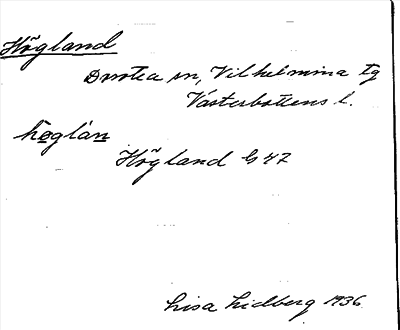 Högland
Dorotea sn, Vilhelmina tg
Västerbottens l.
höglàn
Högland G 42
Lisa Lidberg 1936